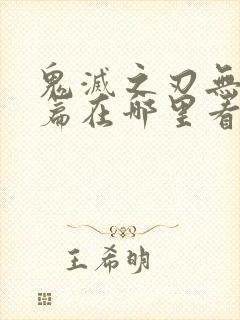 鬼滅之刃無
篇在哪里看
王希明